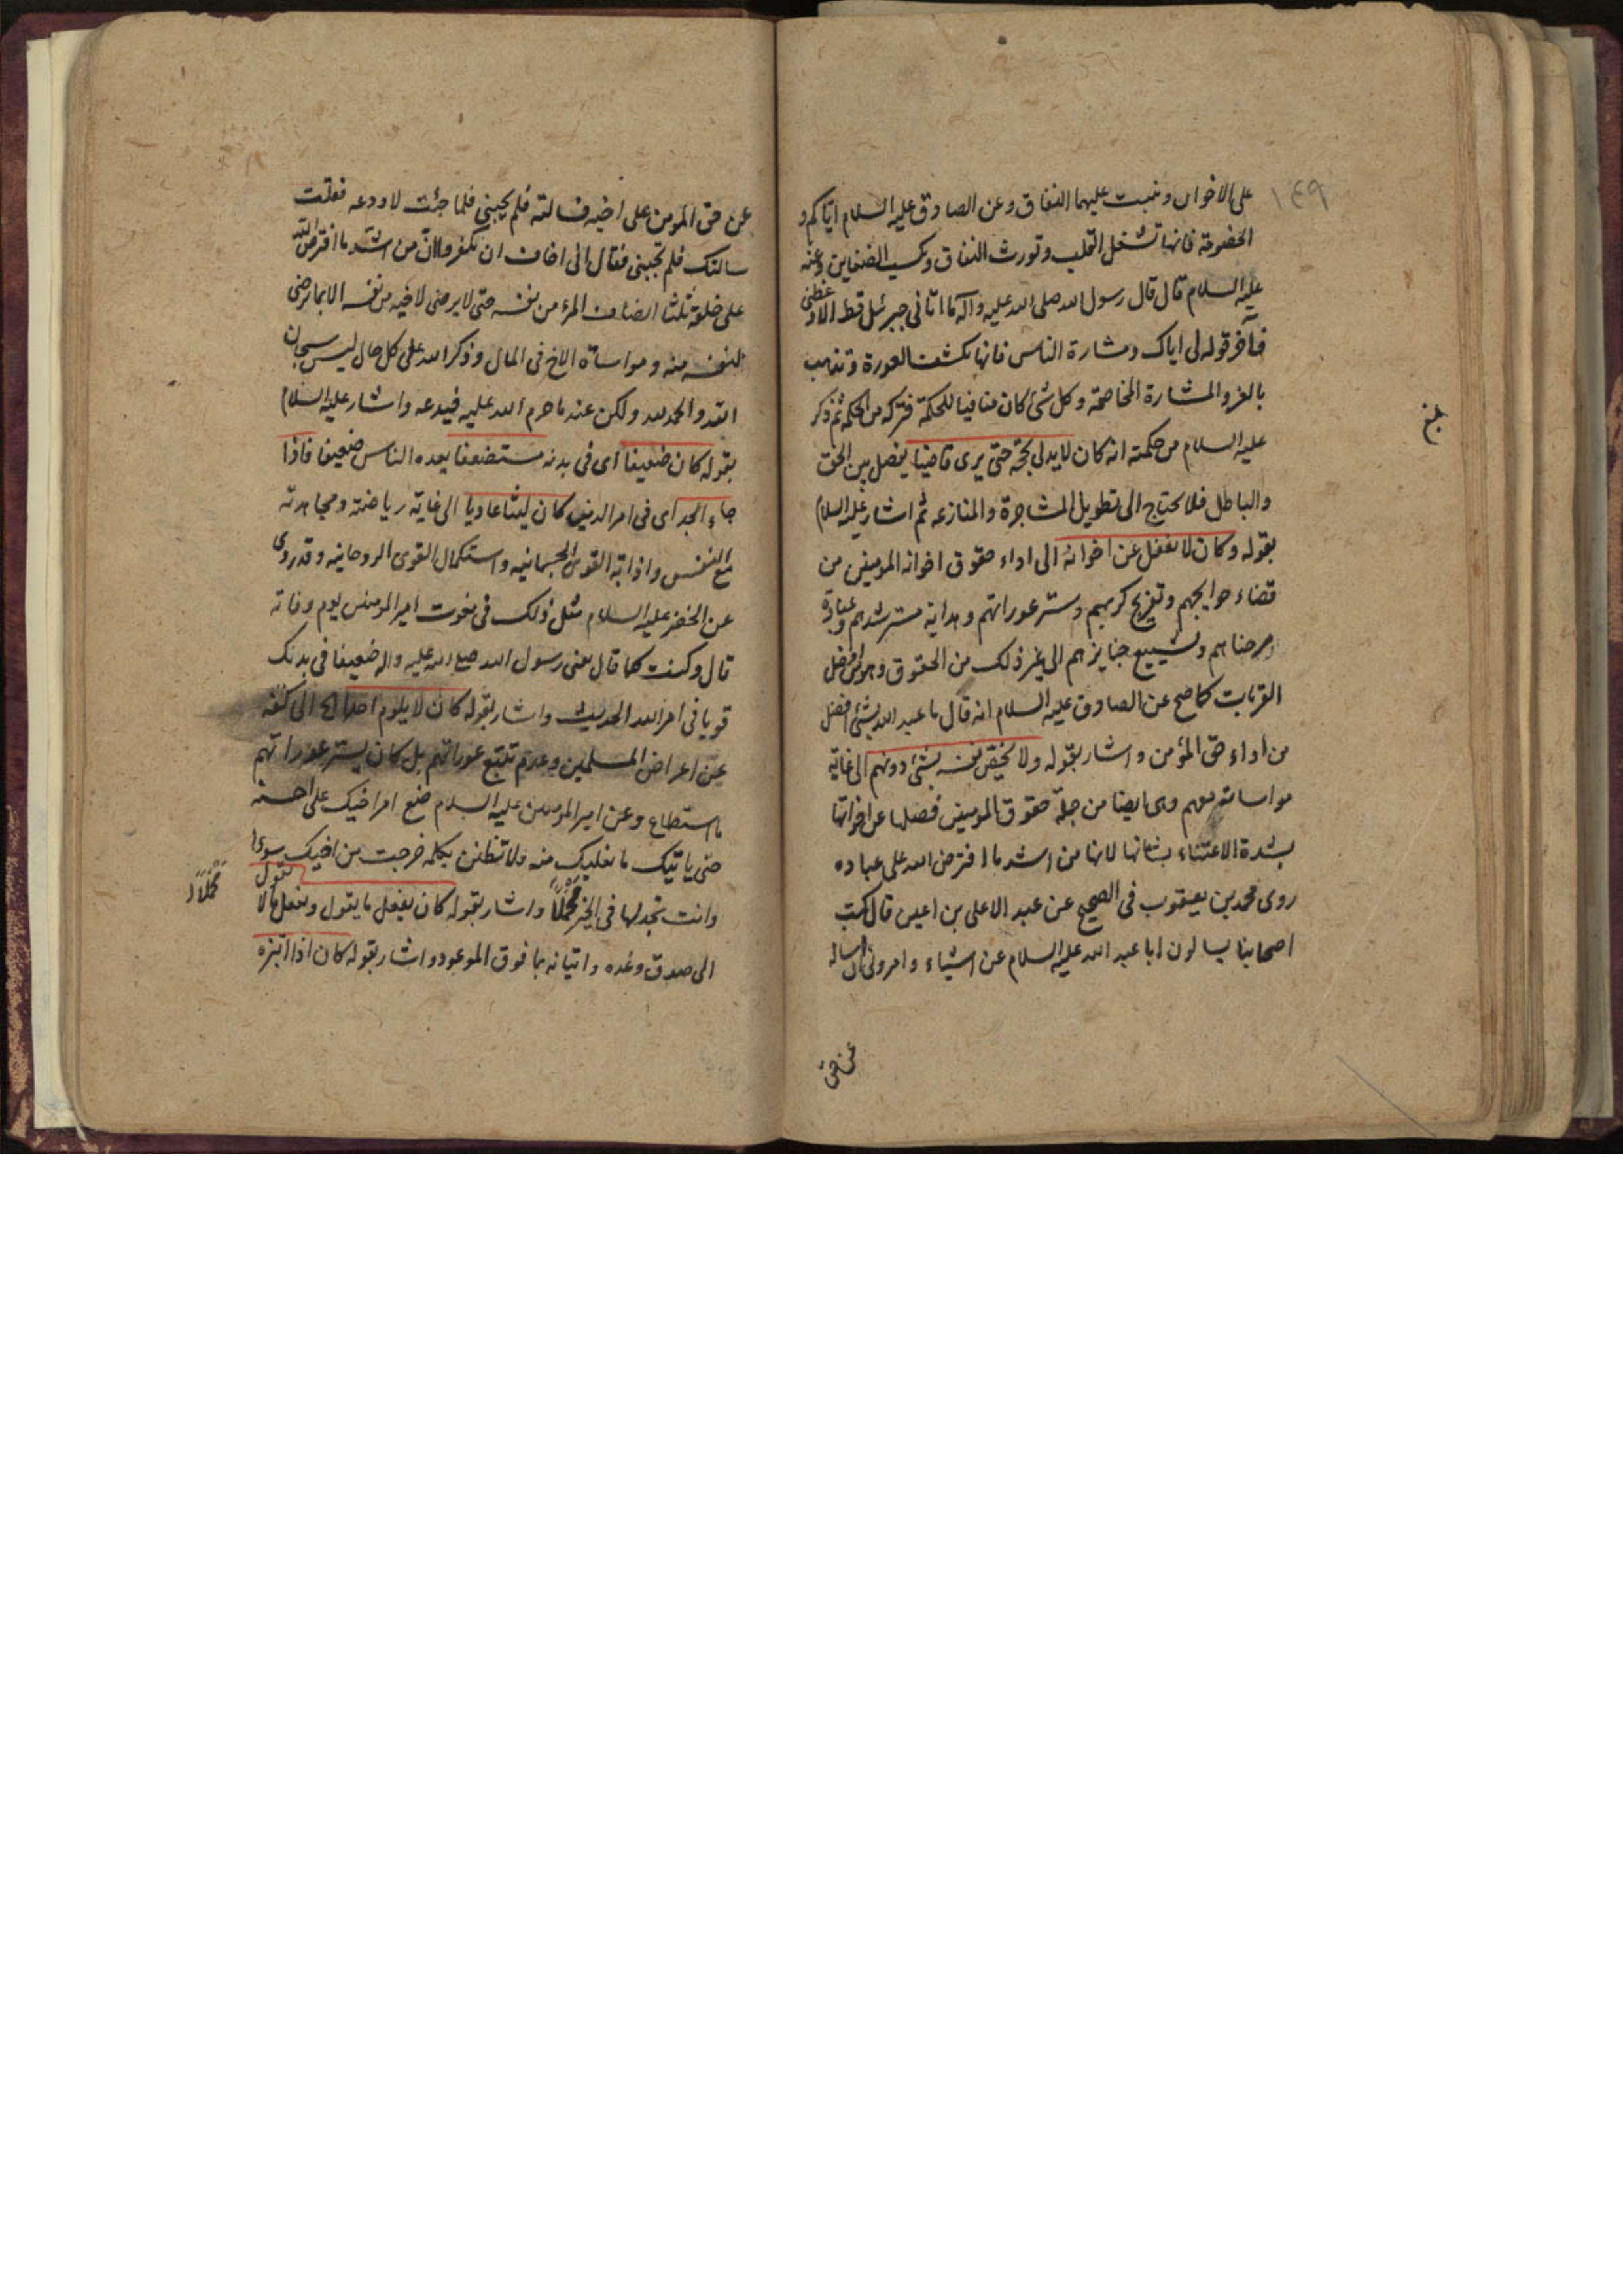 ١٤٩
على الاخوان وينبت عليهما النفاق وعن الصادق عليه السلام اياكم و
الخصومة فانها تشغل القلب وتورث النفاق وتكسب الضغاين وعنه
عليه السلام قال قال رسول الله صلى الله عليه وآله ما اتانى جبرئيل قط الا وعظنى
فآخر قوله لى اياك ومشارة الناس فانها تكشف العورة وتذهب
بالعز والمشارة المخاصمة وكل شئ كان منافيا للحكمة فتركه من الحكمة ثم ذكر
بلغ
عليه السلام من حكمته انه كان لا يدلى بحجة حتى يرى قاضيا يفصل بين الحق
والباطل فلا يحتاج الى تطويل المشاجرة والمنازعه ثم اشار عليه السلام
بقوله وكان لا يغفل عن اخوانه الى اداء حقوق اخوانه المومنين من
قضاء حوايجهم وتفريج كربهم وستر عوراتهم وهداية مسترشدهم وعيادة
مرضاهم وتشييع جنايزهم الى غير ذلك من الحقوق وهو من افضل
القربات كما صح عن الصادق عليه السلام انه قال ما عبد الله بشئ افضل
من اداء حق المؤمن واشار بقوله ولا يختص نفسه بشئ دونهم الى غاية
مواساته معهم وهى ايضا من جملة حقوق المومنين فصلها عن اخواتها
بشدة الاعتناء بشانها لانها من اشد ما افترض الله على عباده
روى محمد بن يعقوب فى الصحيح عن عبد الاعلى بن اعين قال كتب
اصحابنا يسالون ابا عبد الله عليه السلام عن اشياء وامرونى ان اساله
عن حق
عن حق المومن على اخيه فسالته فلم يجبنى فلما جئت لاودعه فقلت
سالتك فلم تجبنى فقال انى اخاف ان تكفروا لان من اشد ما افترض الله
على خلقه ثلثا انصاف المرء من نفسه حتى لا يرضى لاخيه من نفسه الا بما يرضى
لنفسه منه ومواساة الاخ فى المال وذكر الله على كل حال ليس سبحان
الله والحمد لله ولكن عند ما حرم الله عليه فيدعه واشار عليه السلام
بقوله كان ضعيفا اى فى بدنه مستضعفا يعده الناس ضعيفا فاذا
جاء الجد اى فى امر الدين كان ليثا عاديا الى غاية رياضته ومجاهدته
مع النفس واذابة القوى الجسمانيه واستكمال القوى الروحانيه وقد روى
عن الخضر عليه السلام مثل ذلك فى نعوت امير المومنين يوم وفاته
قال وكنت كما قال يعنى رسول الله صلى الله عليه واله ضعيفا فى بدنك
قويا فى امر الله الحديث واشار بقوله كان لا يلوم احدا الخ الى كفه
عن اعراض المسلمين وعدم تتبع عوراتهم بل كان يستر عوراتهم
ما استطاع وعن امير المومنين عليه السلام ضع امر اخيك على احسنه
حتى ياتيك ما يغلبك منه ولا تظنن بكلمة خرجت من اخيك سوءا
وانت تجد لها فى الخير محملا واشار بقوله كان يفعل ما يقول ويفعل ما لا يقول
محملا
الى صدق وعده واتيانه بما فوق الموعود واشار بقوله كان اذا ابتزه